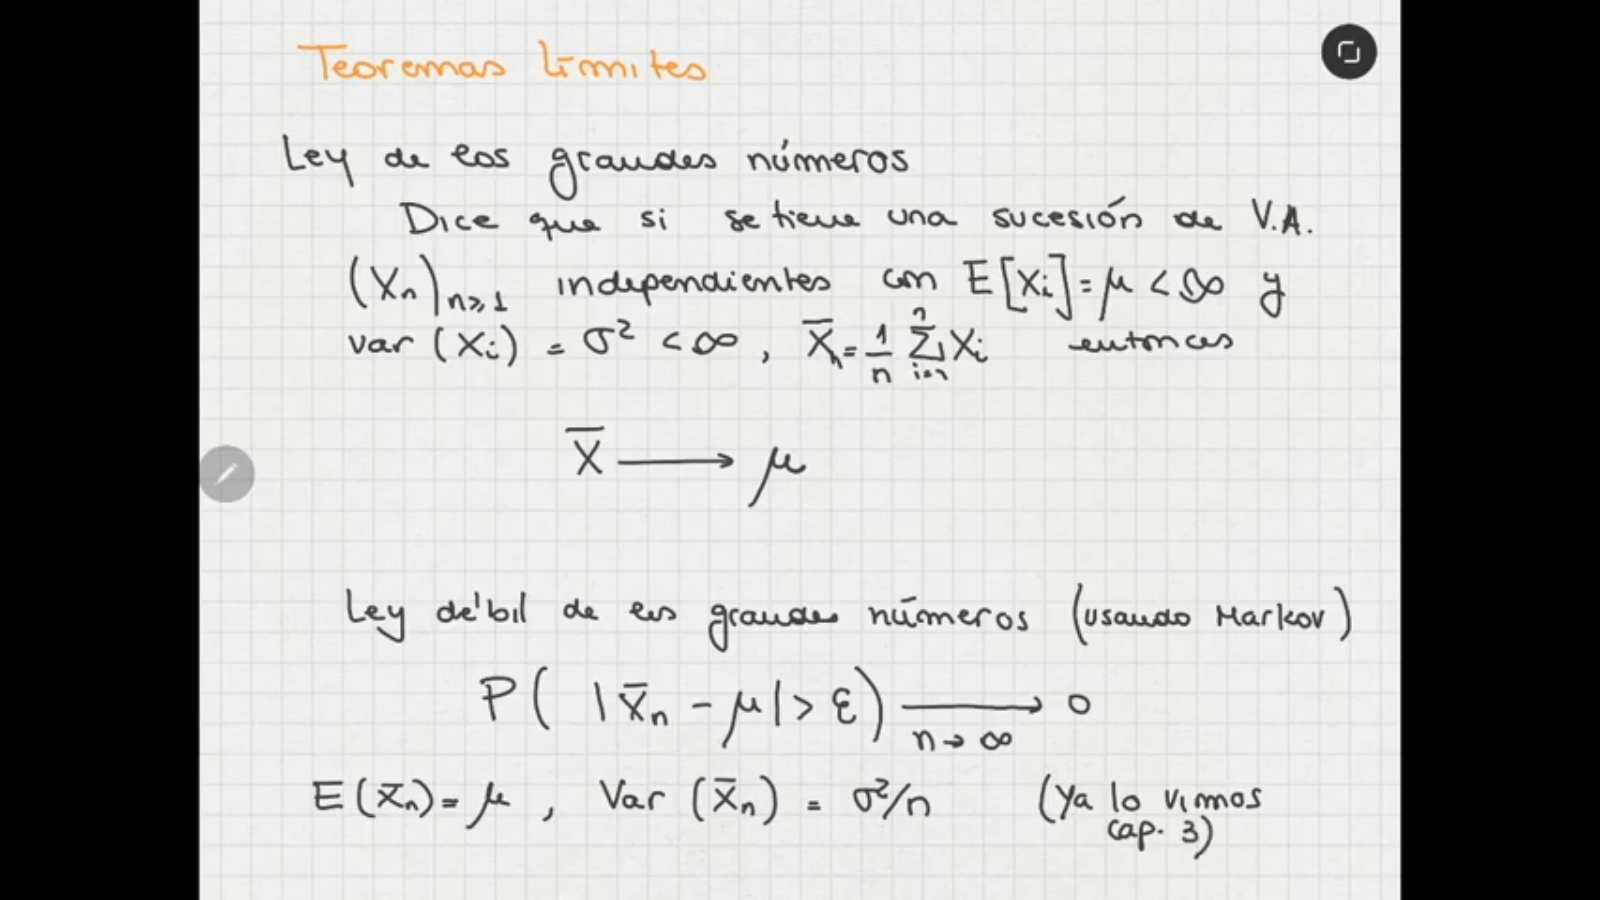 Teoremas límites
Ley de los grandes números
Dice que si se tiene una sucesión de V.A.
(Xn)n≥1 independientes con E[Xi] = μ < ∞ y
var (Xi) = σ² < ∞, X̄n = 1/n Σ_{i=1}^{n} Xi entonces
X̄ ⟶ μ
Ley débil de los grandes números (usando Markov)
P( |X̄n - μ| > ε) ⟶ 0
n → ∞
E(X̄n) = μ, Var (X̄n) = σ²/n (Ya lo vimos
cap. 3)